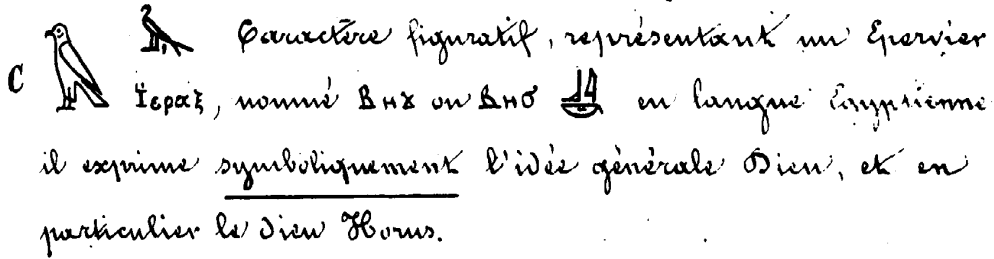 C Caractère figuratif, représentant un Epervier
Ϊεραξ, nommé ⲃⲏϫ ou ⲃⲏϭ en langue Egyptienne
il exprime symboliquement l'idée générale Dieu, et en
particulier le Dieu Horus.